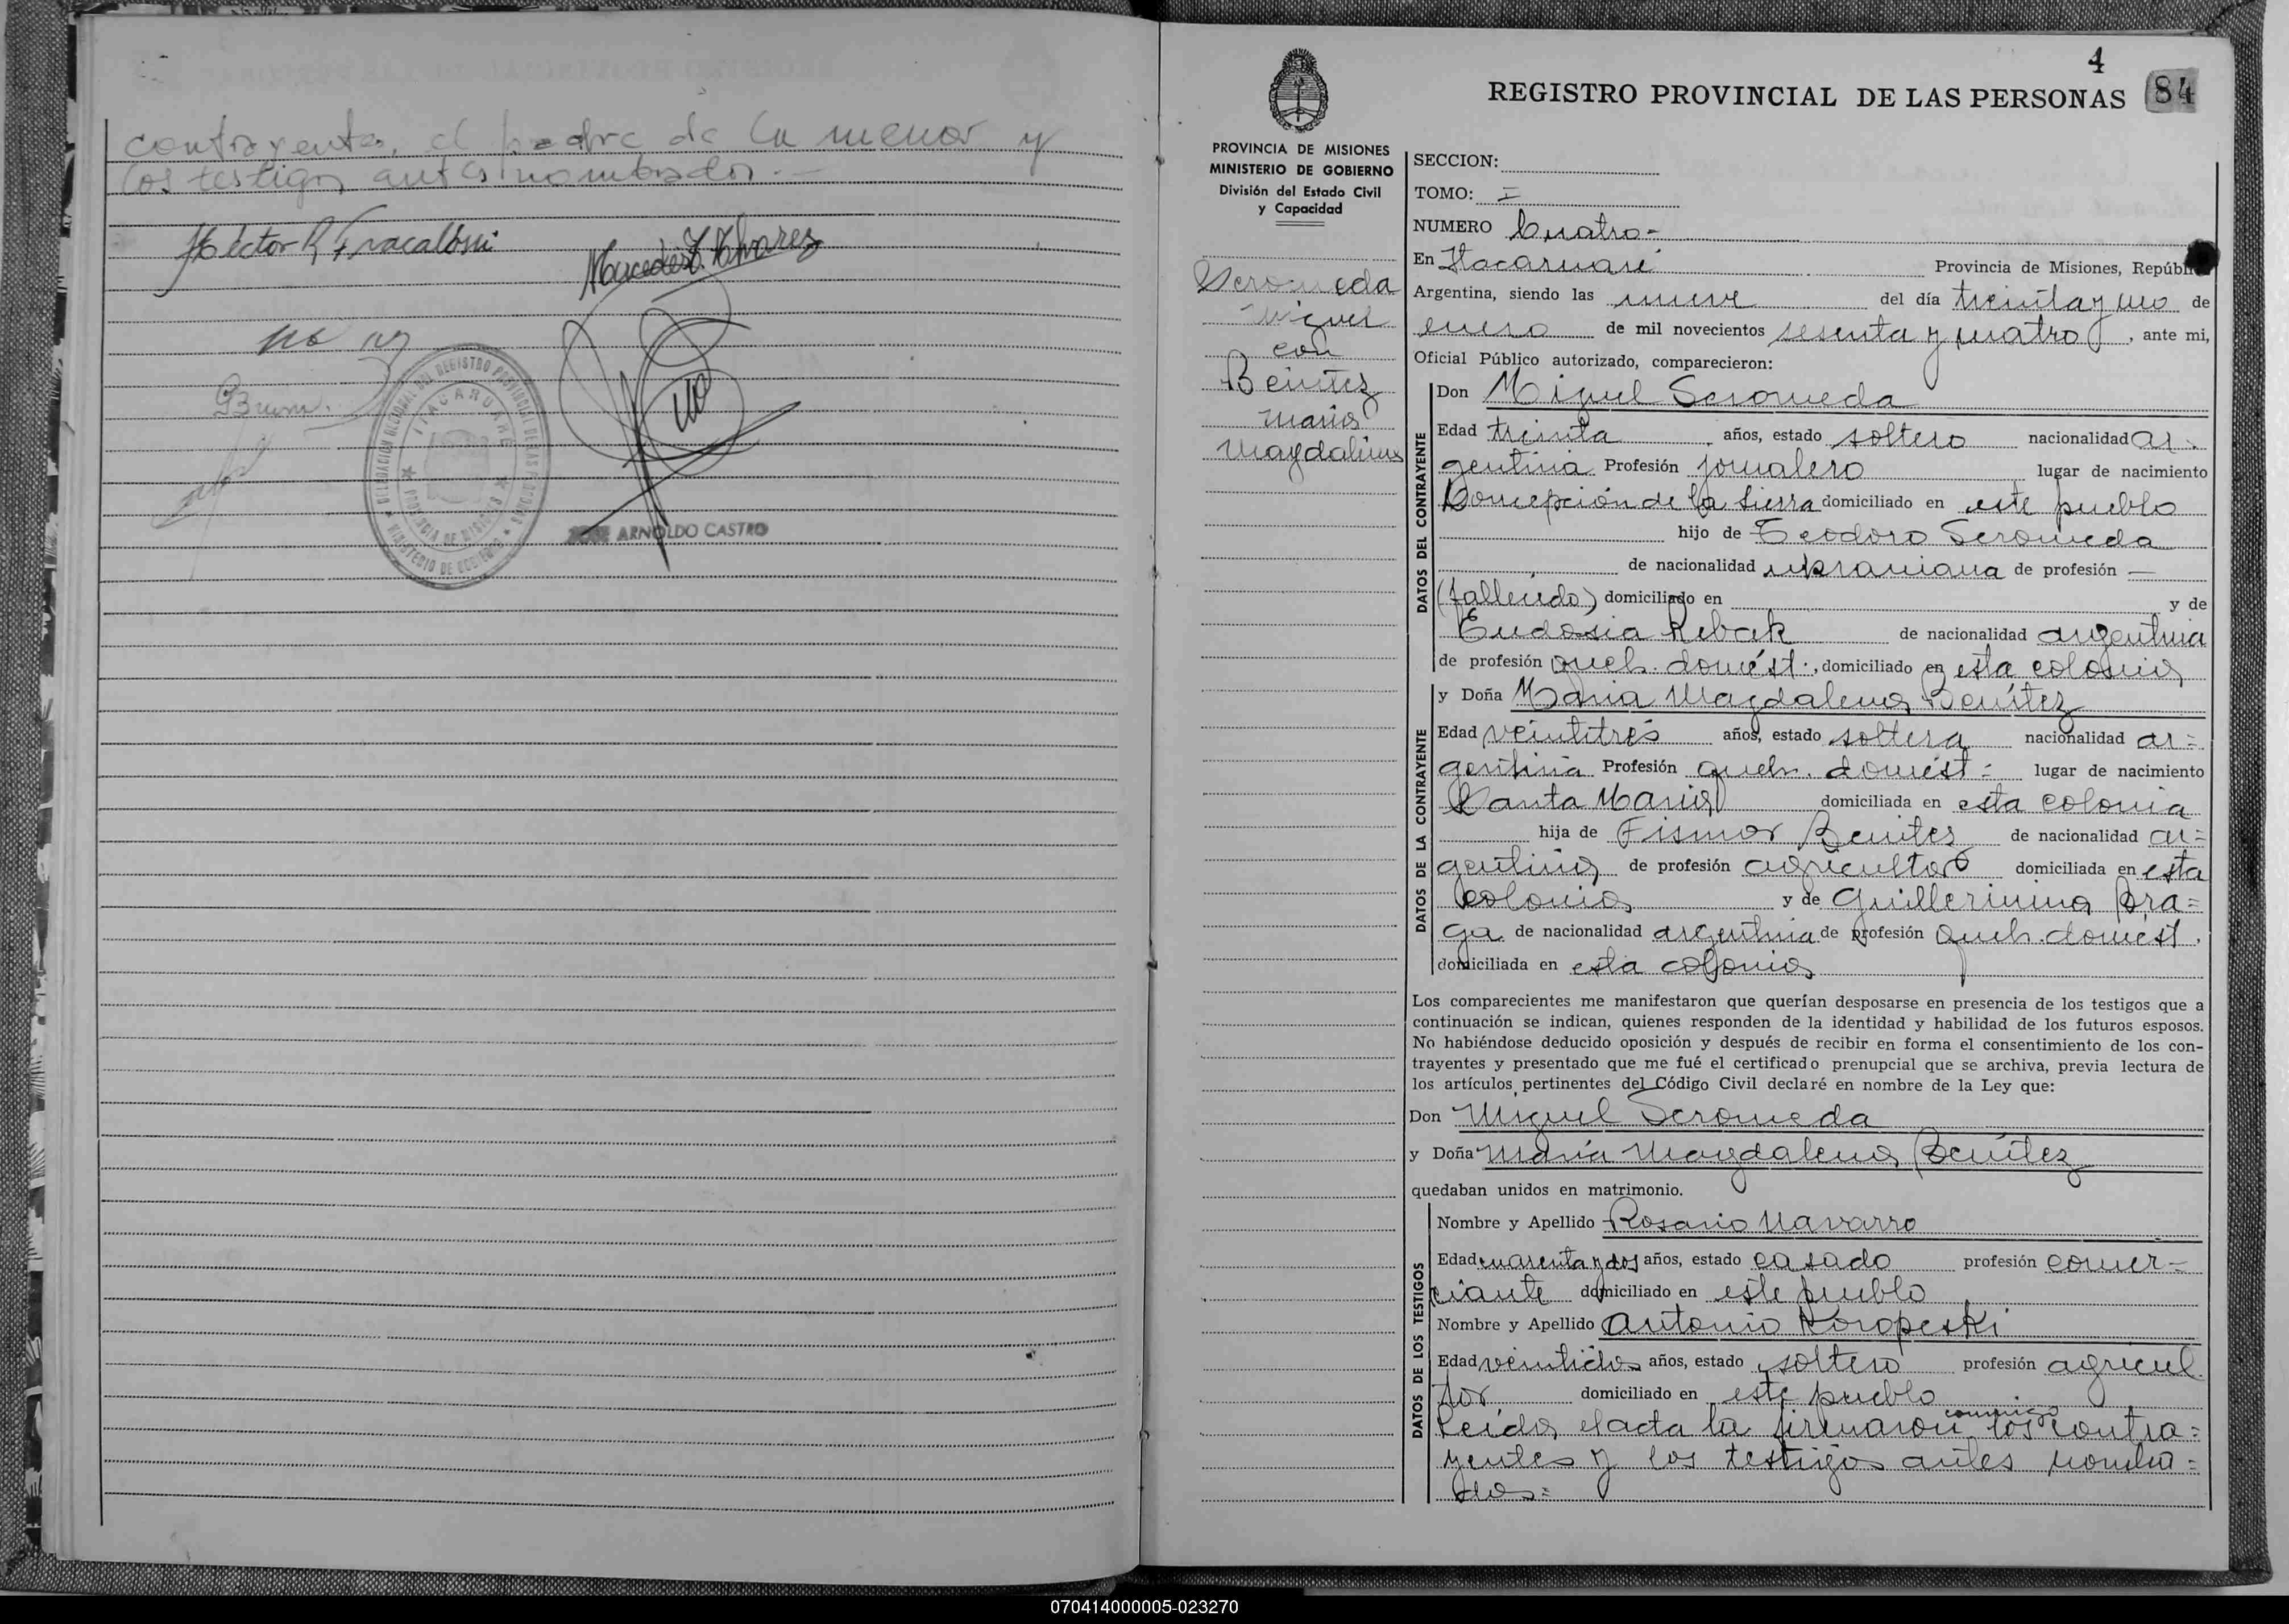 contrayentes, el padre de la menor y
los testigos antes nombrados.-
Hector R Fracalossi
Mercedes Z. Alvarez
DELEGACION SECCIONAL DEL REGISTRO PROVINCIAL DE LAS PERSONAS
ITACARUARE
PROVINCIA DE MISIONES
MINISTERIO DE GOBIERNO
ARNOLDO CASTRO
4
REGISTRO PROVINCIAL DE LAS PERSONAS 84
PROVINCIA DE MISIONES
MINISTERIO DE GOBIERNO
División del Estado Civil
y Capacidad
Seromeda
Miguel
con
Benitez
Maria
Magdalena
SECCION:
TOMO: I
NUMERO Cuatro-
En Itacaruaré Provincia de Misiones, República
Argentina, siendo las nueve del día treinta y uno de
enero de mil novecientos sesenta y cuatro, ante mi,
Oficial Público autorizado, comparecieron:
DATOS DEL CONTRAYENTE
Don Miguel Seromeda
Edad treinta años, estado soltero nacionalidad ar-
gentina Profesión jornalero lugar de nacimiento
Concepción de la Sierra domiciliado en este pueblo
hijo de Teodoro Seromeda
de nacionalidad ukraniana de profesión —
(fallecido) domiciliado en y de
Eudosia Rebak de nacionalidad argentina
de profesión queh. domést., domiciliado en esta colonia
DATOS DE LA CONTRAYENTE
y Doña Maria Magdalena Benítez
Edad veintitrés años, estado soltera nacionalidad ar=
gentina Profesión queh. domést= lugar de nacimiento
Santa Maria domiciliada en esta colonia
hija de Fismor Benitez de nacionalidad ar=
gentina de profesión agricultor domiciliada en esta
colonia y de Guillermina Bra=
ga de nacionalidad argentina de profesión queh. domest.
domiciliada en esta colonia
Los comparecientes me manifestaron que querían desposarse en presencia de los testigos que a
continuación se indican, quienes responden de la identidad y habilidad de los futuros esposos.
No habiéndose deducido oposición y después de recibir en forma el consentimiento de los con-
trayentes y presentado que me fué el certificado prenupcial que se archiva, previa lectura de
los artículos pertinentes del Código Civil declaré en nombre de la Ley que:
Don Miguel Seromeda
y Doña María Magdalena Benítez
quedaban unidos en matrimonio.
DATOS DE LOS TESTIGOS
Nombre y Apellido Rosario Navarro
Edad cuarenta y dos años, estado casado profesión comer-
ciante domiciliado en este pueblo
Nombre y Apellido Antonio Koropeski
Edad años, estado soltero profesión agricul
tor domiciliado en este pueblo
Leída el acta la firmaron conmigo los contra=
yentes y los testigos antes nombra=
dos=
070414000005-023270